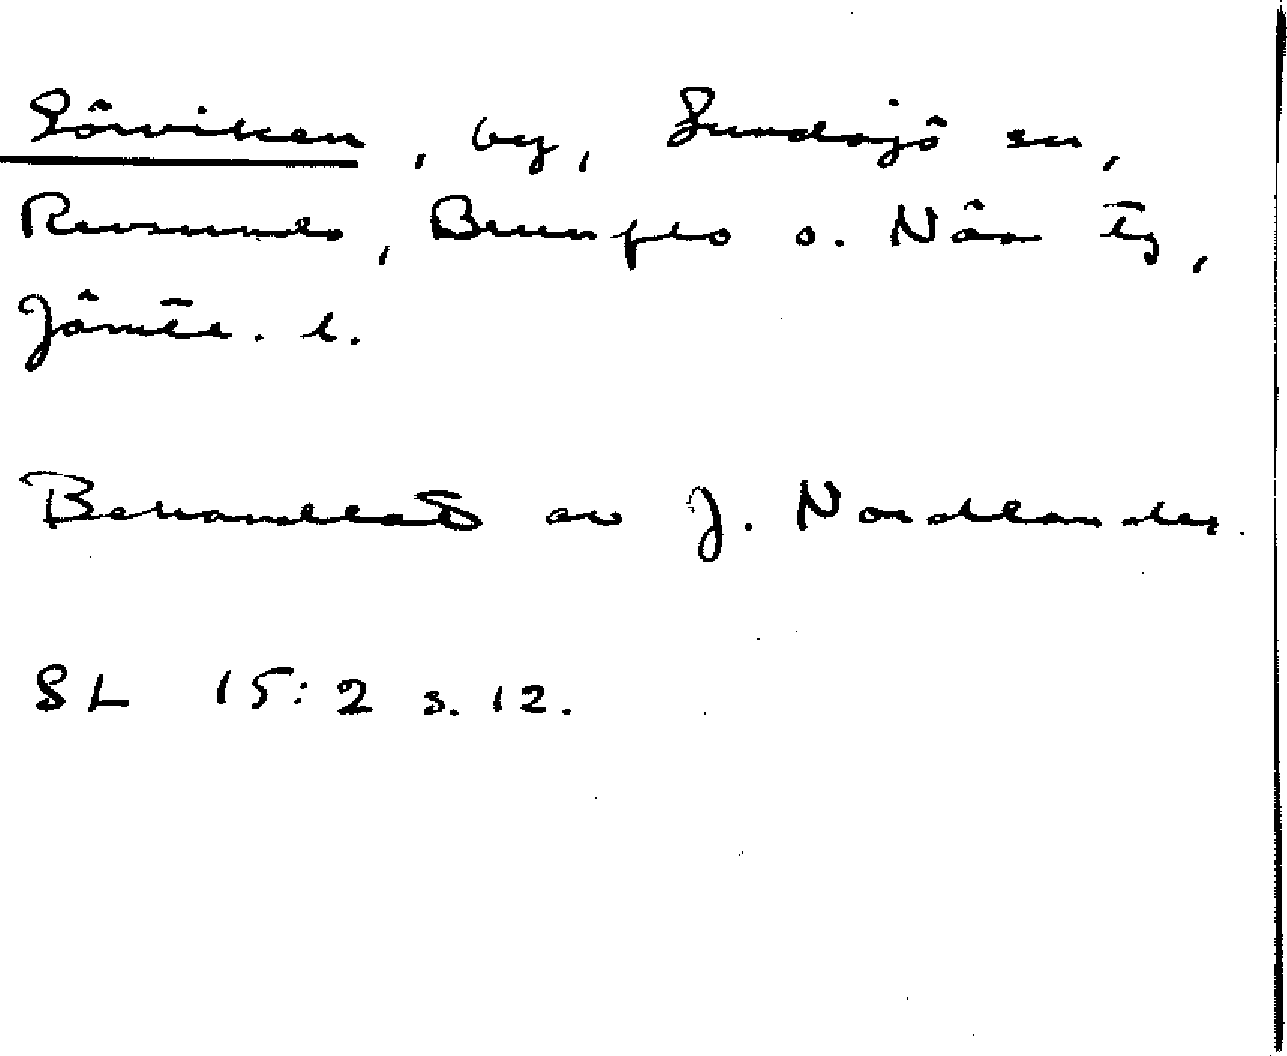 Sörviken, by, Sundsjö sn,
Revsunds, Brunflo o. Näs tg,
Jämtl. l.
Behandlat av J. Nordlander.
SL 15:2 s. 12.